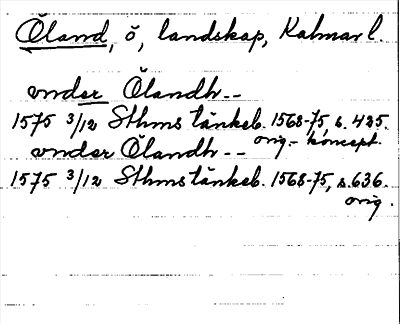 Öland, ö, landskap, Kalmar l.
vnder Ölandh--
1575 3/12 Sthms tänkeb. 1568-75, s. 425.
orig.- koncept.
vnder Ölandh--
1575 3/12 Sthms tänkeb. 1568-75, s. 636.
orig.